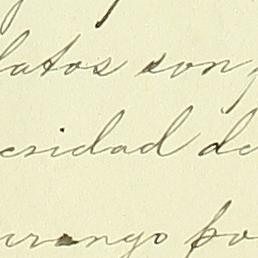 latos son
esidad de
urango po